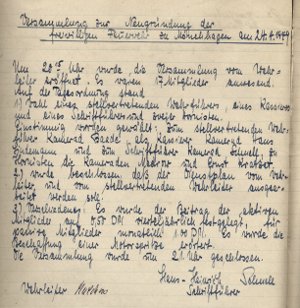 Versammlung zur Neugründung der
freiwilligen Feuerwehr zu Mönchhagen am 24.4.1949
Um 20 15 Uhr wurde die Versammlung vom Wehr-
leiter eröffnet. Es waren 17 Mitglieder anwesend.
Auf der Tagesordnung stand
1) Wahl eines stellvertretenden Wehrführers, eines Kassierers
und eines Schriftführers und zweier
Einstimmig wurden gewählt: Zum stellvertretenden Wehr-
führer Kamerad Saade, als Kassierer Kamerad Hans
und zum Schriftführer Kamerad Schnell, zu
die Kameraden und Ernst
2) Es wurde beschlossen, daß der Dienstplan vom Wehr-
leiter und vom stellvertretenden Wehrleiter ausgear-
beitet werden soll.
3) Verschiedenes: Es wurde der Beitrag der aktiven
Mitglieder auf 0.50 DM vierteljährlich festgelegt, für
passive Mitglieder monatlich 1.- DM. Es wurde die
Beschaffung einer Motorspritze erörtert.
Die Versammlung wurde um 21 Uhr geschlossen.
Hans-Heinrich Schnell
Wehrleiter Schriftführer